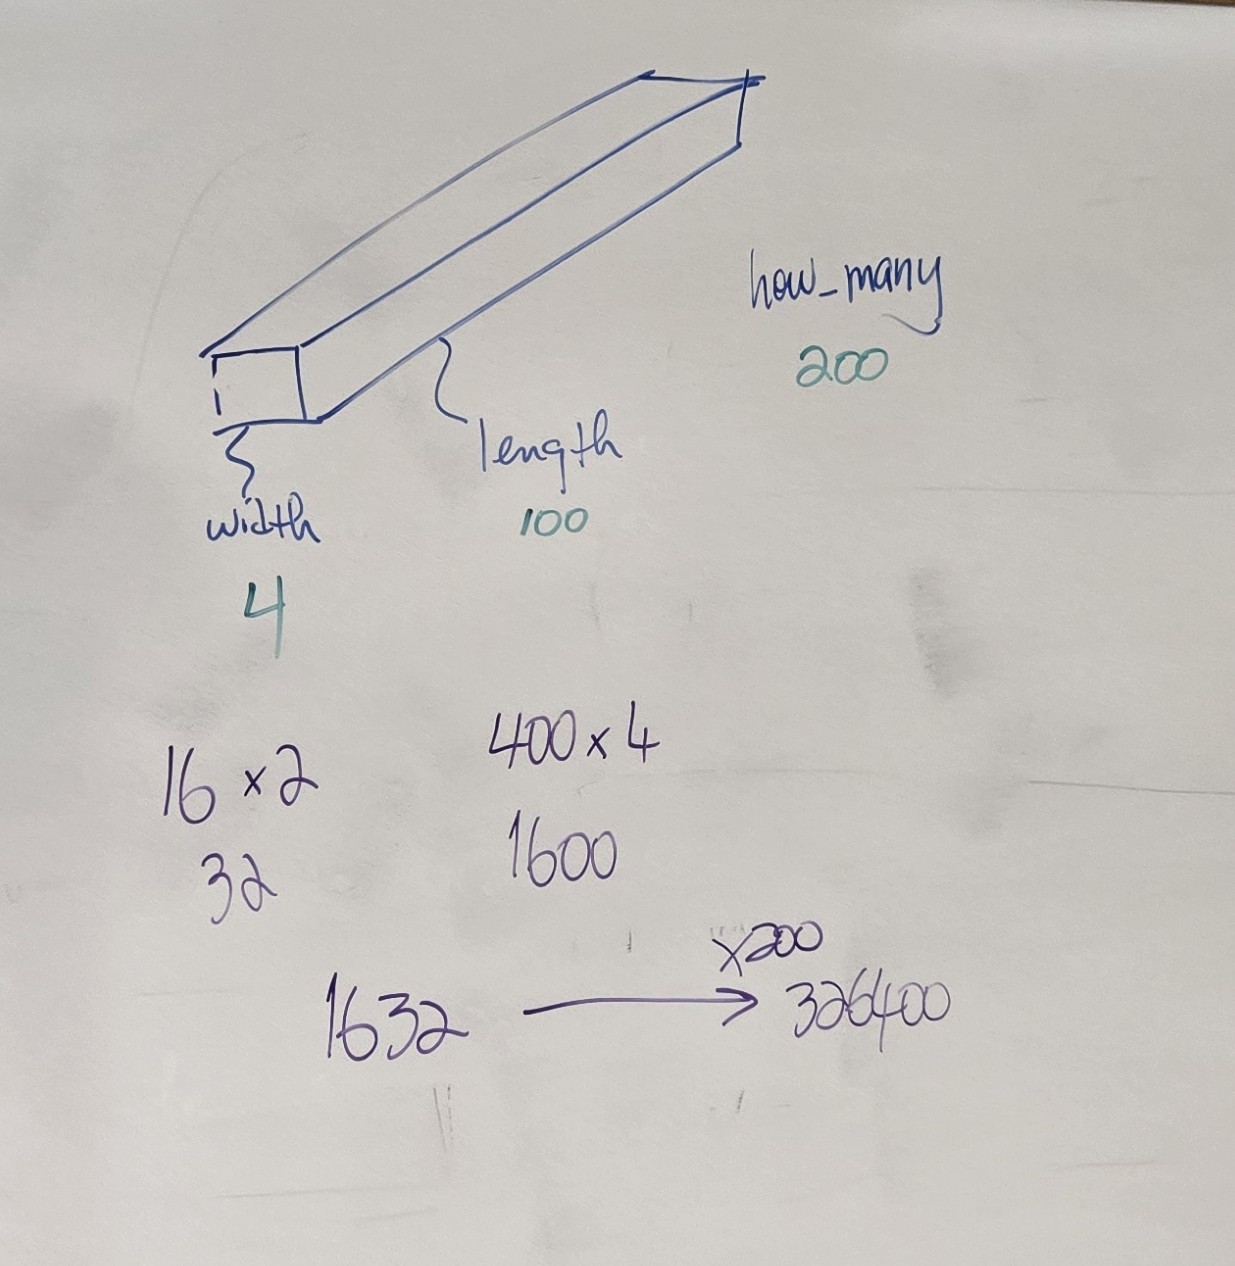 how_many
200
length
100
width
4
16 × 2
32
400 × 4
1600
×200
1632 → 326400